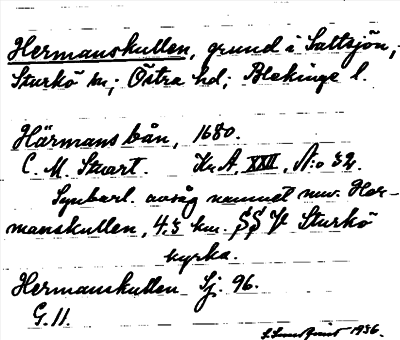 Hermanskullen, grund i Saltsjön,
Sturkö sn; Östra hd; Blekinge l.
Härmans bån, 1680.
C. M. Stuart. Kr.A. XXII, N:o 32.
Synbarl. avsåg namnet nuv. Her-
manskullen, 4,5 km. SSV Sturkö
kyrka.
Hermanskullen Sj. 96.
G. 11.
1936.